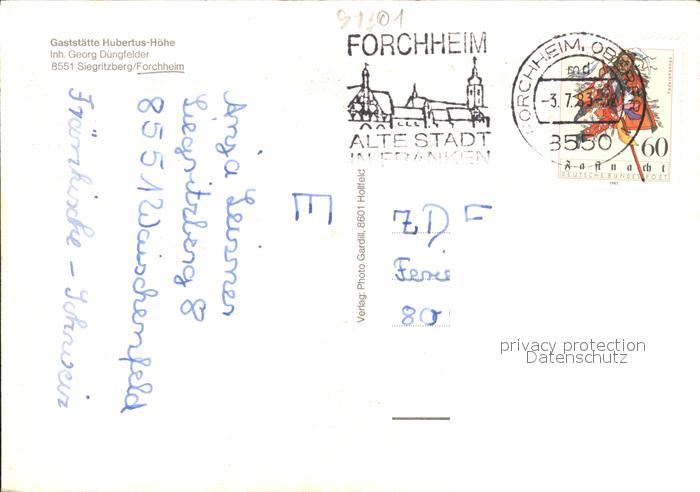 91301
Gaststätte Hubertus-Höhe
Inh. Georg Düngfelder
8551 Siegritzberg/Forchheim
FORCHHEIM
ALTE STADT
IN FRANKEN
FORCHHEIM, OBERFR
md
-3.7.83
8550
60
Fastnacht
DEUTSCHE BUNDESPOST
1983
Anja
Siegritzberg 8
8551 Waischenfeld
Fränkische - Schweiz
E
Verlag: Photo Gardill, 8601 Hollfeld
ZDF
Ferie
80
privacy protection
Datenschutz